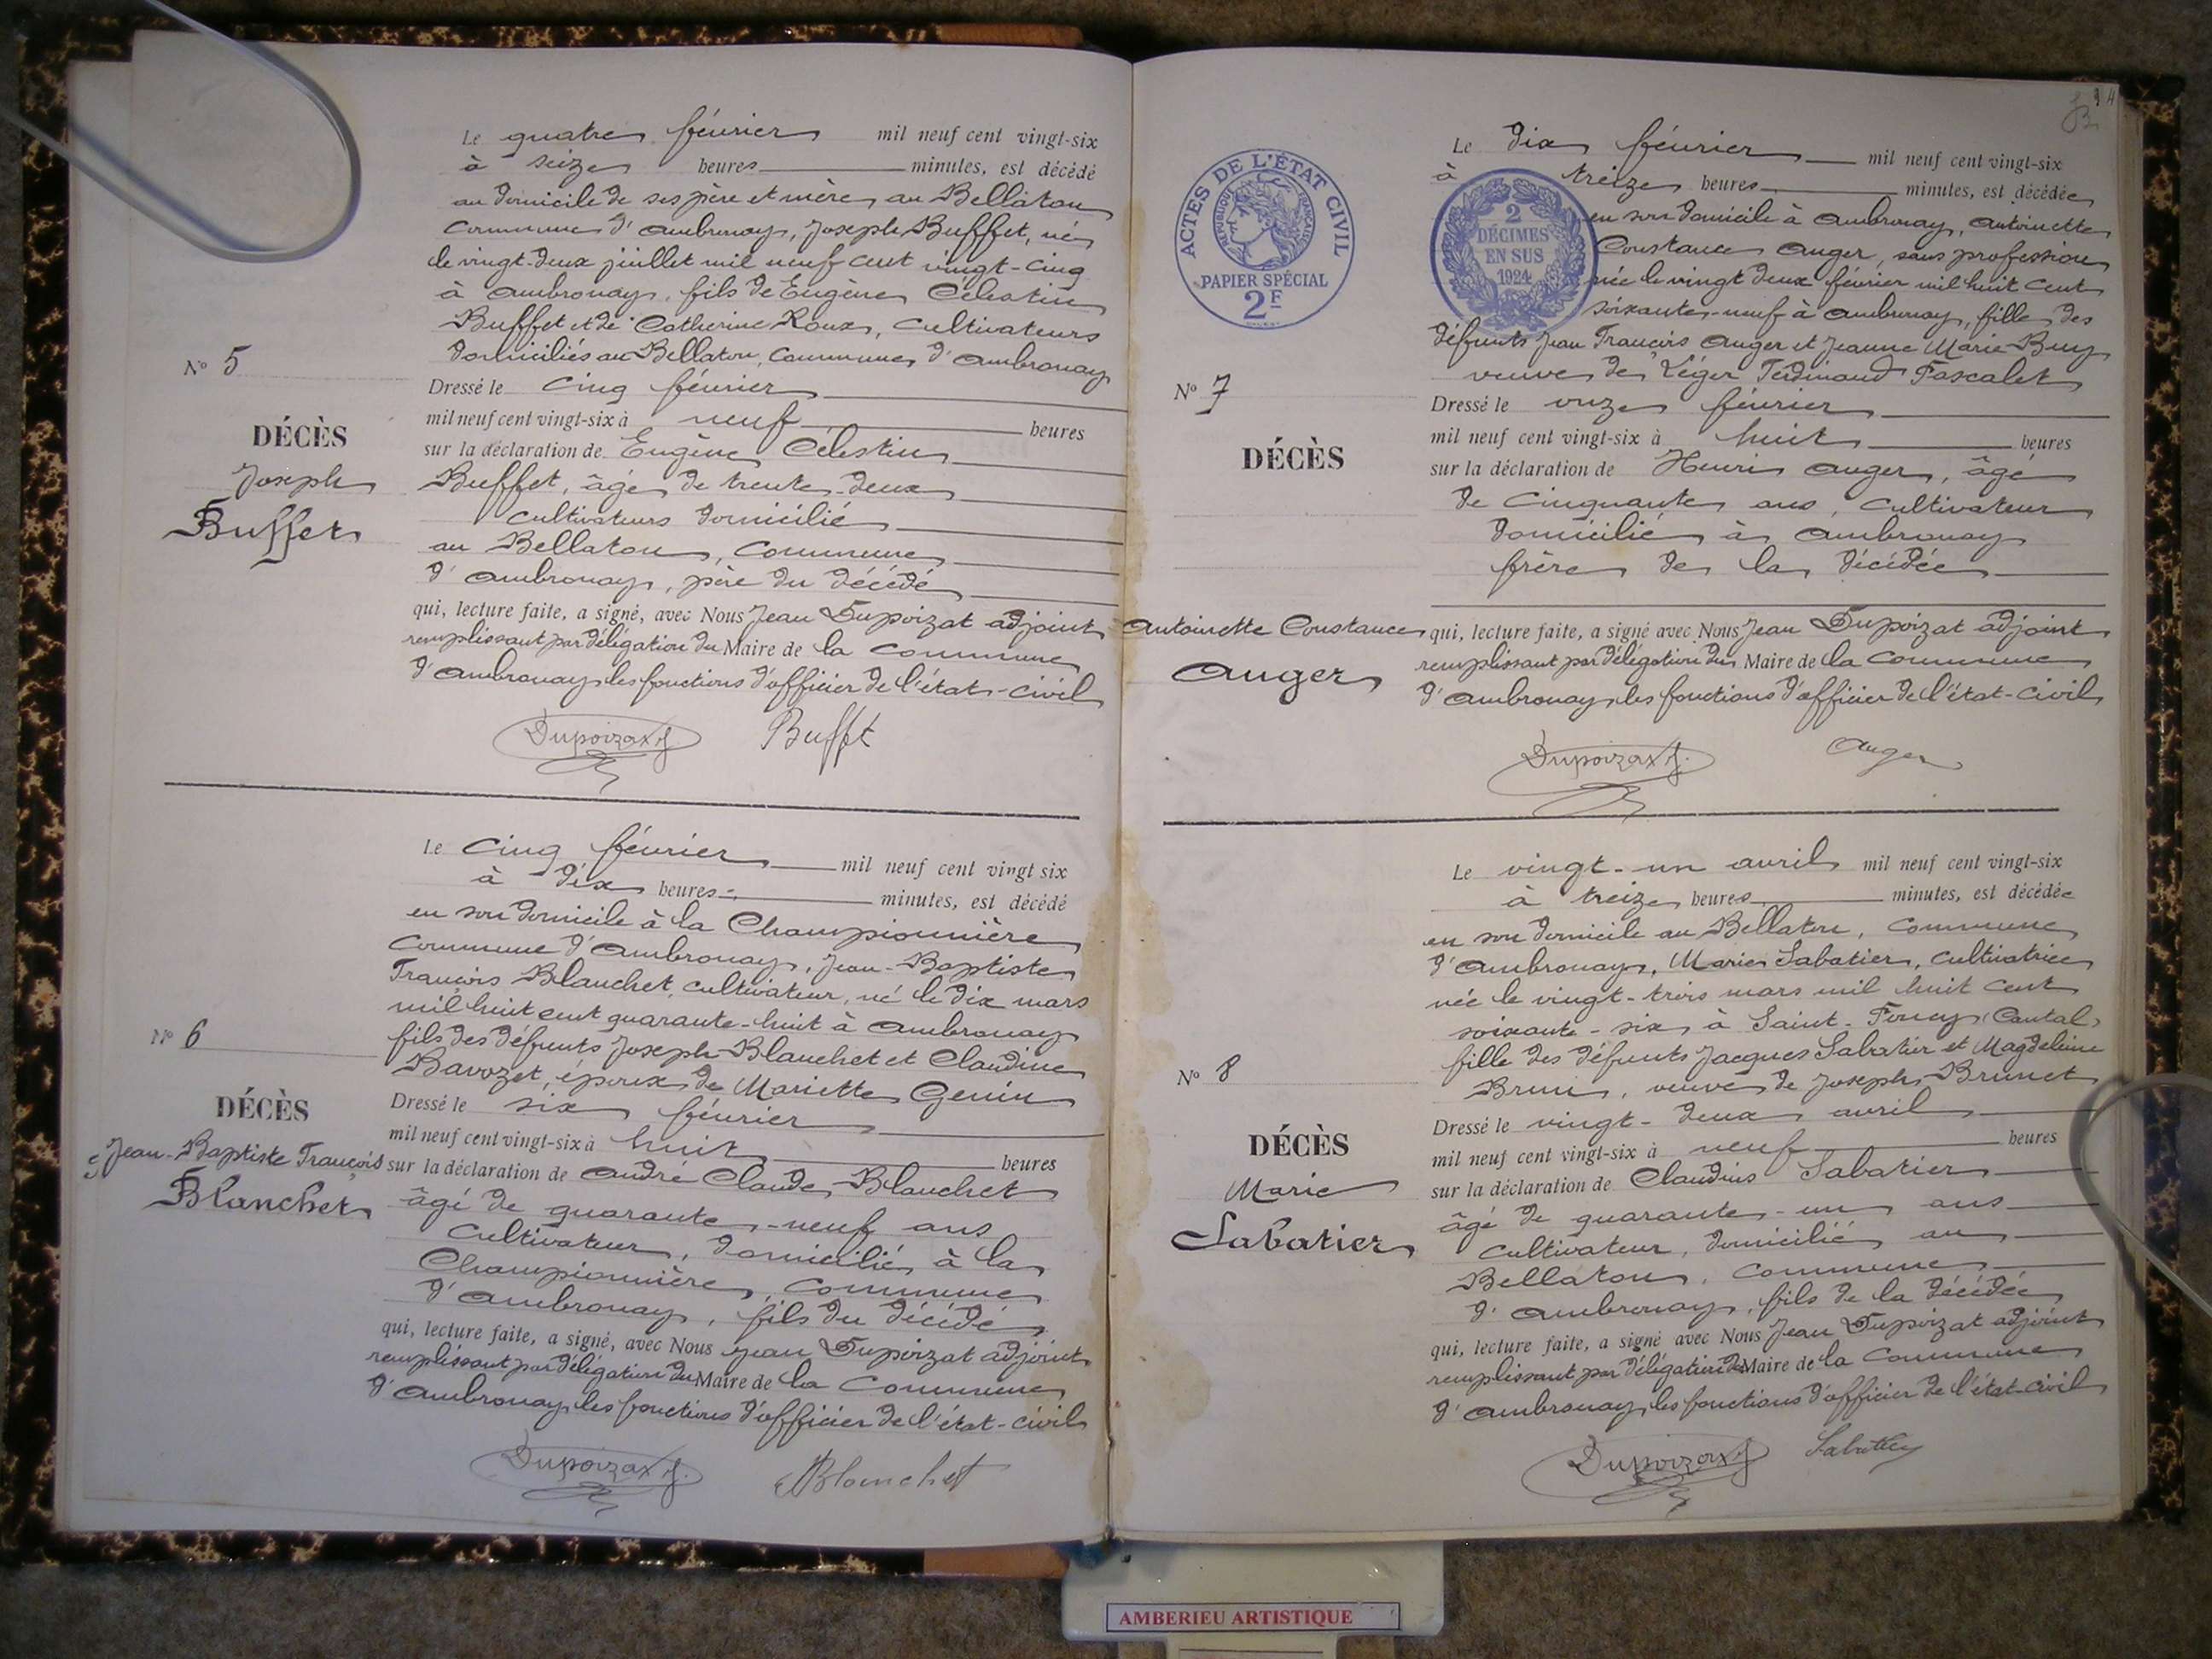 Le quatre février mil neuf cent vingt-six
à seize heures minutes, est décédé
au domicile de ses père et mère, au Bellaton
Commune d'Ambronay, Joseph Buffet, né
le vingt-deux juillet mil neuf cent vingt-cinq
à Ambronay, fils de Eugène Célestin
Buffet et de Catherine Roux, cultivateurs
domiciliés au Bellaton, Commune d'Ambronay
N° 5
DÉCÈS
Joseph
Buffet
Dressé le cinq février
mil neuf cent vingt-six à neuf heures
sur la déclaration de Eugène Célestin
Buffet, âgé de trente-deux
cultivateurs domicilié
au Bellaton, Commune
d'Ambronay, père du décédé
qui, lecture faite, a signé, avec Nous Jean Dupoizat adjoint
remplissant par délégation du Maire de la Commune
d'Ambronay les fonctions d'officier de l'état-civil
Dupoizat J. Buffet
Le cinq février mil neuf cent vingt six
à dix heures minutes, est décédé
en son domicile à la Championnière
Commune d'Ambronay, Jean-Baptiste
François Blanchet, cultivateur, né le dix mars
mil huit cent quarante-huit à Ambronay
fils des défunts Joseph Blanchet et Claudine
Bavozet, époux de Mariette Genin
N° 6
DÉCÈS
Jean-Baptiste François
Blanchet
Dressé le six février
mil neuf cent vingt-six à huit heures
sur la déclaration de André Claude Blanchet
âgé de quarante-neuf ans
cultivateur, domicilié à la
Championnière, Commune
d'Ambronay, fils du décédé
qui, lecture faite, a signé, avec Nous Jean Dupoizat adjoint
remplissant par délégation du Maire de la Commune
d'Ambronay les fonctions d'officier de l'état-civil
Dupoizat J. Blanchet
ACTES DE L'ÉTAT CIVIL
RÉPUBLIQUE FRANÇAISE
PAPIER SPÉCIAL
2F
2
DÉCIMES
EN SUS
1924
Le dix février mil neuf cent vingt-six
à treize heures minutes, est décédée
en son domicile à Ambronay, Antoinette
Constance Auger, sans profession
née le vingt deux février mil huit cent
soixante-neuf à Ambronay, fille des
défunts Jean François Auger et Jeanne Marie Buy
veuve de Léger Ferdinand Pascalet
N° 7
DÉCÈS
Antoinette Constance
Auger
Dressé le onze février
mil neuf cent vingt-six à huit heures
sur la déclaration de Henri Auger, âgé
de cinquante ans, cultivateur
domicilié à Ambronay
frère de la décédée
qui, lecture faite, a signé avec Nous Jean Dupoizat adjoint
remplissant par délégation du Maire de la Commune
d'Ambronay les fonctions d'officier de l'état-civil
Dupoizat J. Auger
Le vingt-un avril mil neuf cent vingt-six
à treize heures minutes, est décédée
en son domicile au Bellaton, Commune
d'Ambronay, Marie Sabatier, cultivatrice
née le vingt-trois mars mil huit cent
soixante-six à Saint-Poncy (Cantal)
fille des défunts Jacques Sabatier et Magdeleine
Brun, veuve de Joseph Brunet
N° 8
DÉCÈS
Marie
Sabatier
Dressé le vingt-deux avril
mil neuf cent vingt-six à neuf heures
sur la déclaration de Claudius Sabatier
âgé de quarante-un ans
cultivateur, domicilié au
Bellaton, Commune
d'Ambronay, fils de la décédée
qui, lecture faite, a signé avec Nous Jean Dupoizat adjoint
remplissant par délégation du Maire de la Commune
d'Ambronay les fonctions d'officier de l'état-civil
Dupoizat J. Sabatier
AMBERIEU ARTISTIQUE